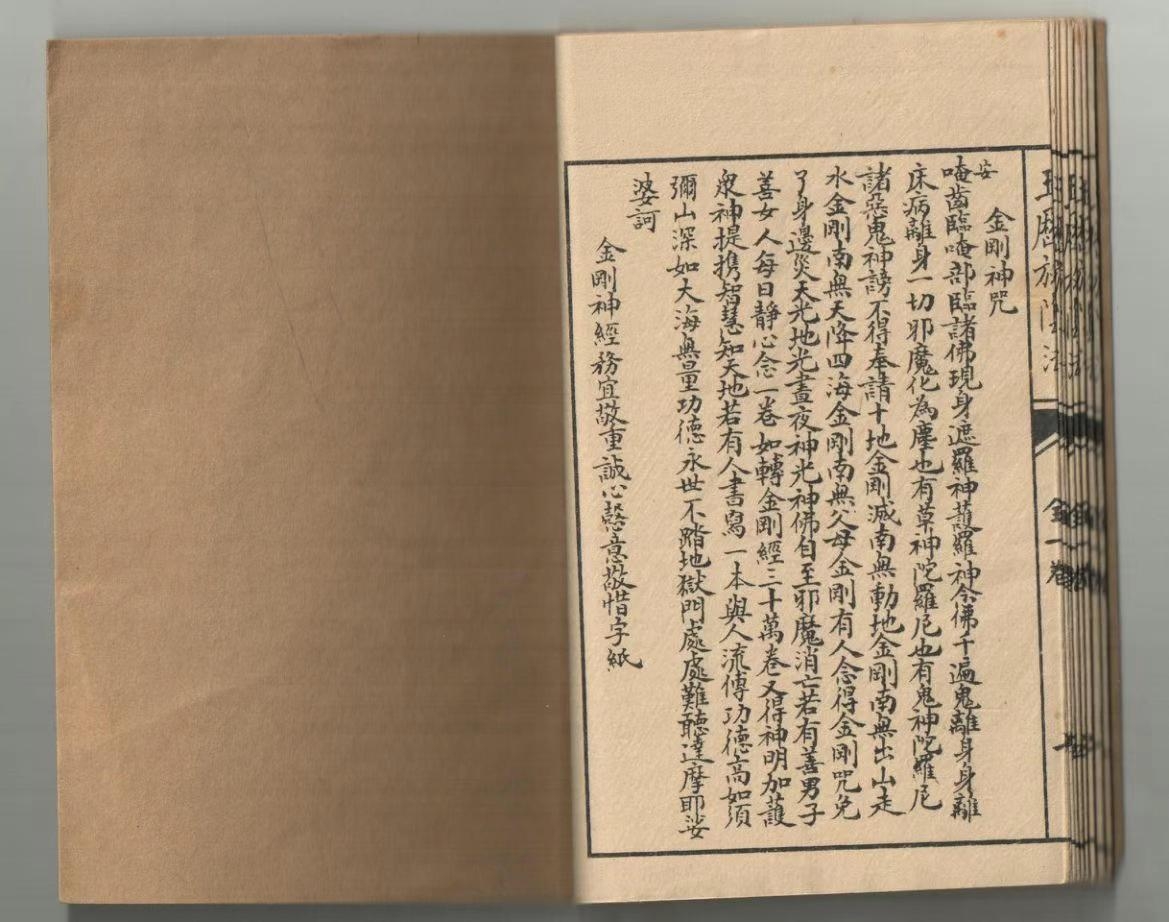 金剛神咒
安
唵齒臨唵部臨諸佛現身遮羅神護羅神令佛千遍鬼離身身離
床病離身一切邪魔化為塵也有草神陀羅尼也有鬼神陀羅尼
諸惡鬼神謗不得奉請十地金剛滅南無動地金剛南無出山走
水金剛南無天降四海金剛南無父母金剛有人念得金剛咒免
了身邊災天光地光晝夜神光神佛自至邪魔消亡若有善男子
善女人每日靜心念一卷如轉金剛經三十萬卷又得神明加護
眾神提携智慧知天地若有人書寫一本與人流傳功德高如須
彌山深如大海無量功德永世不踏地獄門處處難聽達摩耶娑
婆訶
金剛神經務宜敬重誠心慤意敬惜字紙